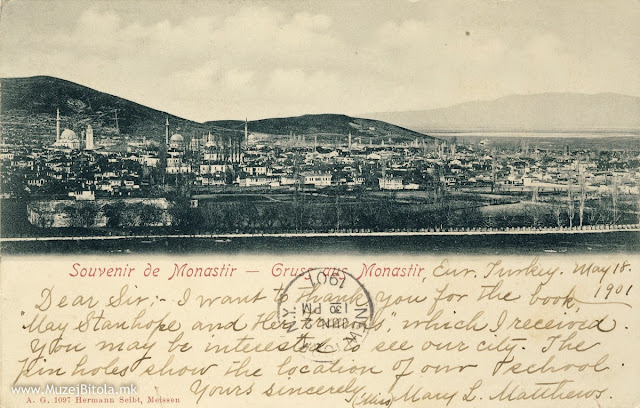 Souvenir de Monastir — Gruss aus Monastir, Eur. Turkey. May 18.
1901
Dear Sir;- I want to thank you for the book,
"May Stanhope and Her Friends", which I received.
You may be interested to see our city. The
Pin holes show the location of our school.
Yours sincerely, (Miss) Mary L. Matthews.
NEW YORK, N.Y.
JUN 2
130 PM
1901
www.MuzejBitola.mk
A. G. 1097 Hermann Seibt, Meissen